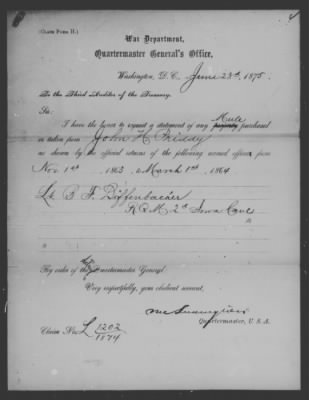 (Claim Form H.)
4
War Department,
Quartermaster General's Office,
Washington, D. C., June 23d, 1875.
To the Third Auditor of the Treasury.
Sir:
I have the honor to request a statement of any property Mule purchased
or taken from John H. Friddy
as shown by the official returns of the following named officers from
Nov 1st 1863 to March 1st 1864
Lt. B. F. Diffenbacher
R. Q. M. 2d Iowa Cav.
By order of the Quartermaster General.
Very respectfully, your obedient servant,
Quartermaster, U. S. A.
Claim No. L 1202
1874